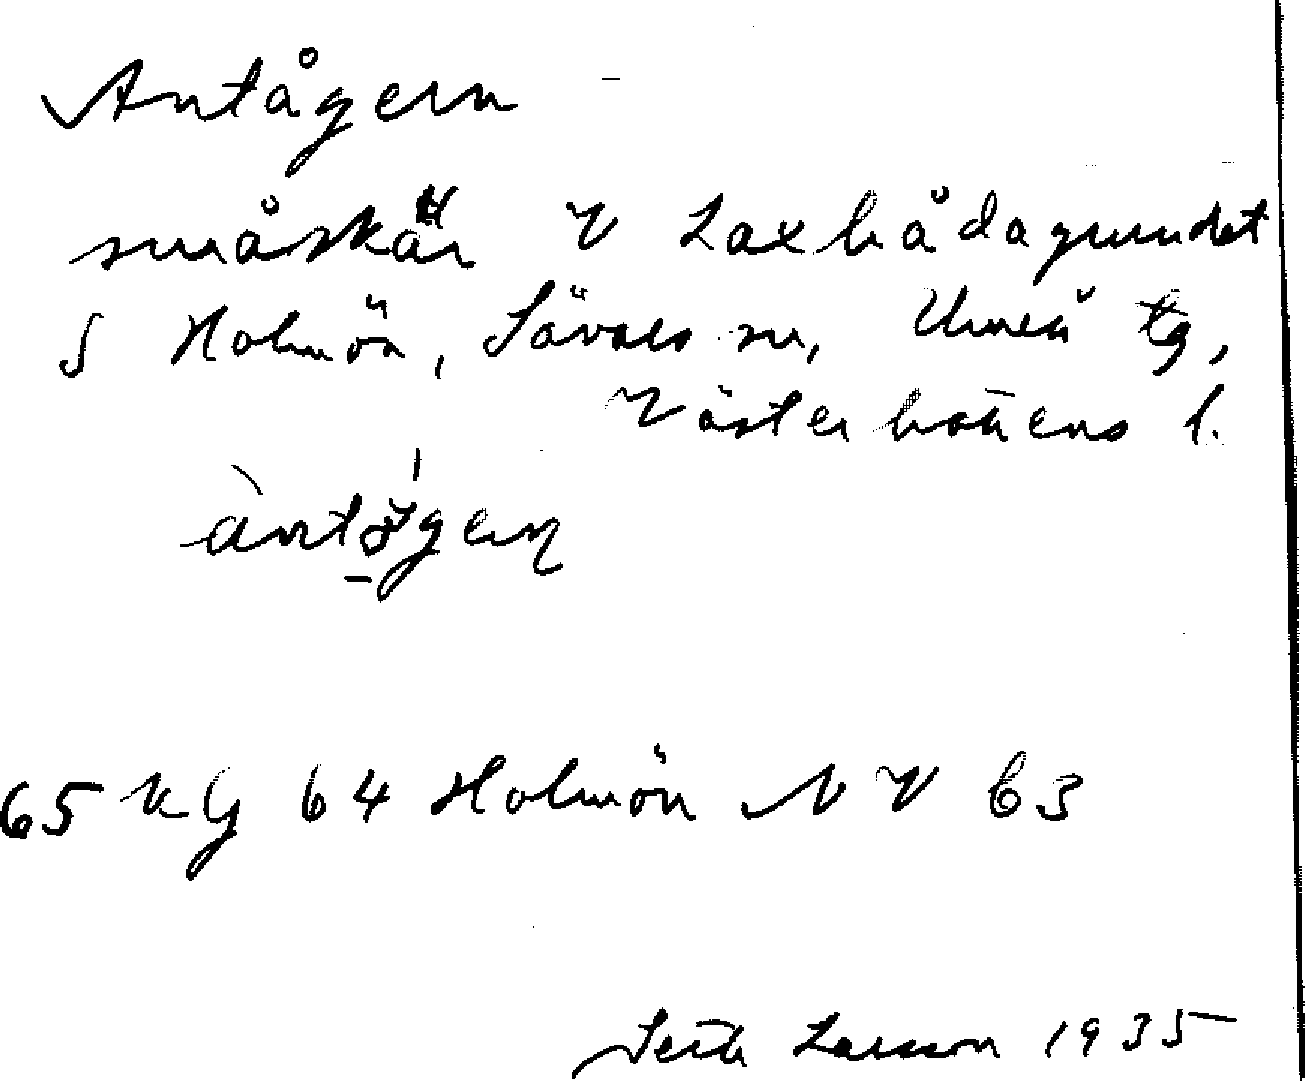 Antågern
småskär V Laxbådagrundet
S Holmön, Sävars sn, Umeå tg,
Västerbottens l.
65 KG 64 Holmön NV 63
Larsson 1935